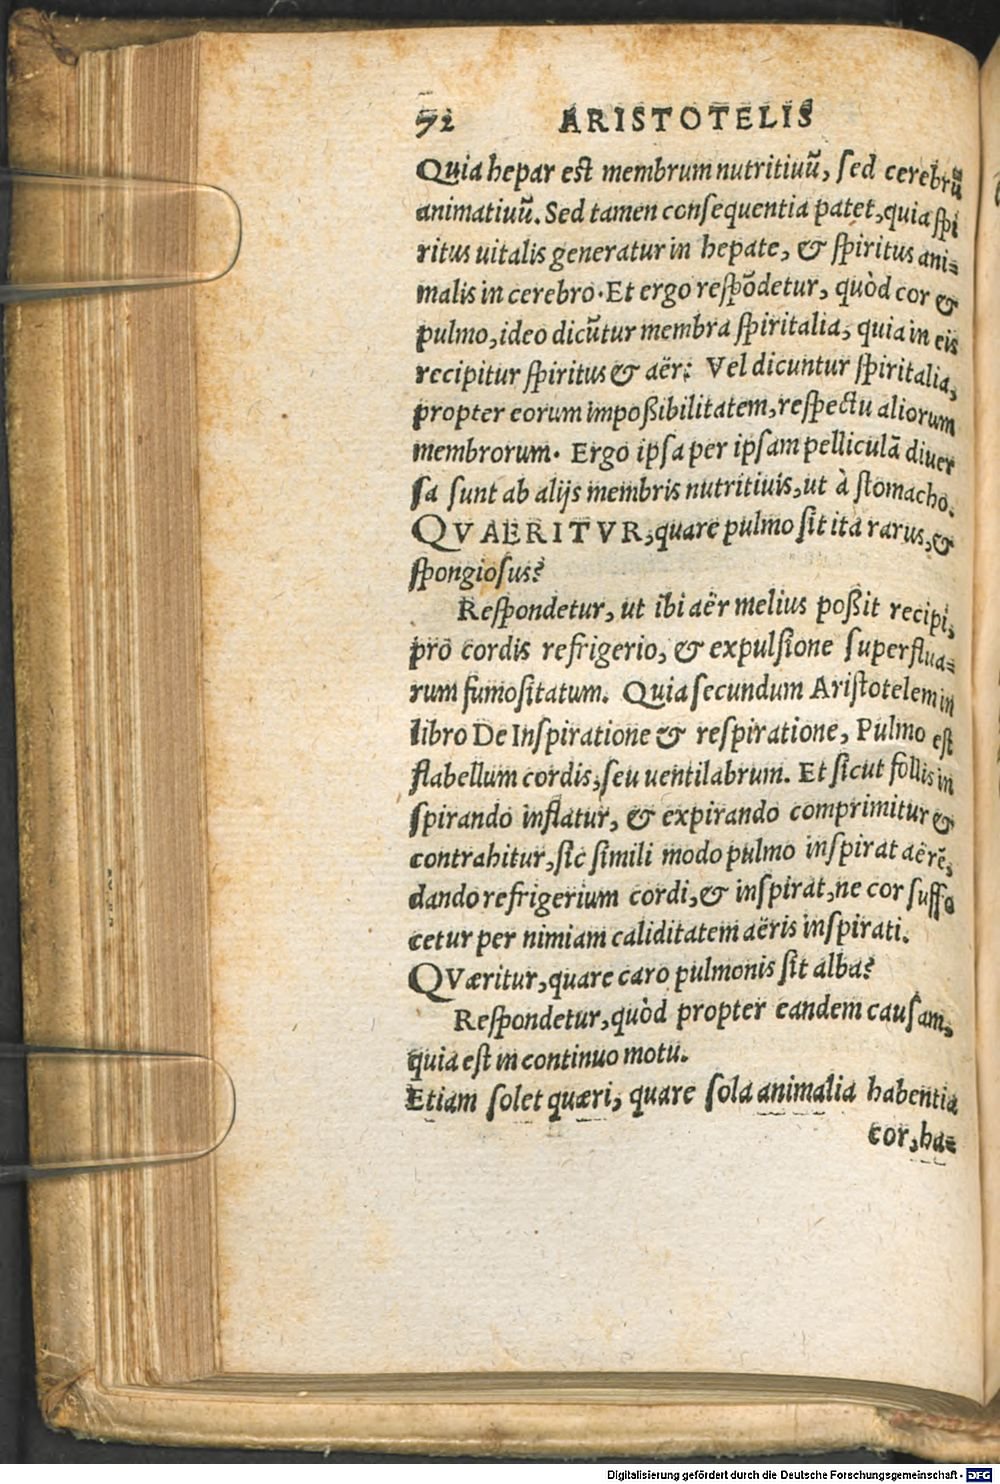 72 ARISTOTELIS
Quia hepar est membrum nutritiuũ, sed cerebrũ
animatiuũ. Sed tamen consequentia patet, quia spi
ritus uitalis generatur in hepate, & spiritus ani-
malis in cerebro. Et ergo respõdetur, quòd cor &
pulmo, ideo dicũtur membra spiritalia, quia in eis
recipitur spiritus & aër: Vel dicuntur spiritalia,
propter eorum impoßibilitatem, respectu aliorum
membrorum. Ergo ipsa per ipsam pelliculã diuer
sa sunt ab alijs membris nutritiuis, ut à stomacho.
QVAERITVR, quare pulmo sit ita rarus, &
spongiosus?
Respondetur, ut ibi aër melius poßit recipi,
pro cordis refrigerio, & expulsione superflua-
rum fumositatum. Quia secundum Aristotelem in
libro De Inspiratione & respiratione, Pulmo est
flabellum cordis, seu uentilabrum. Et sicut follis in
spirando inflatur, & expirando comprimitur &
contrahitur, sic simili modo pulmo inspirat aërẽ,
dando refrigerium cordi, & inspirat, ne cor suffo
cetur per nimiam caliditatem aëris inspirati.
QVæritur, quare caro pulmonis sit alba?
Respondetur, quòd propter eandem causam,
quia est in continuo motu.
Etiam solet quæri, quare sola animalia habentia
cor, ha-
Digitalisierung gefördert durch die Deutsche Forschungsgemeinschaft - DFG